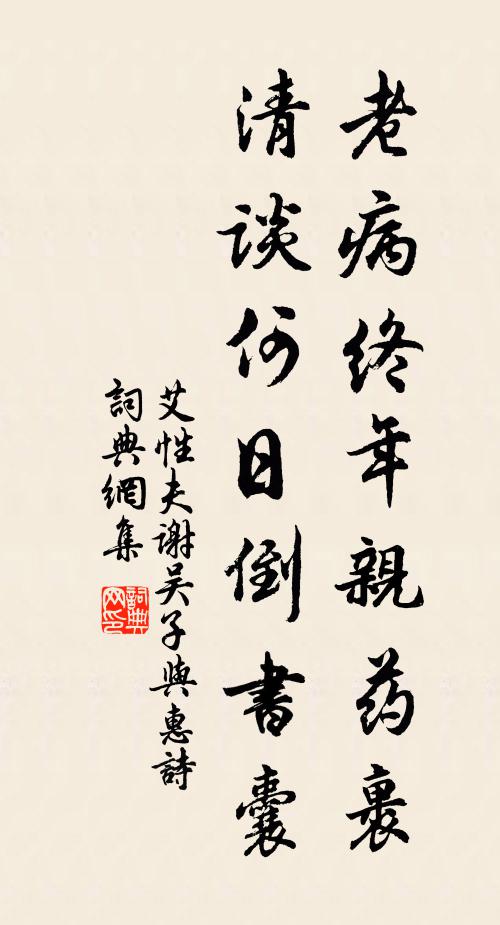 老病终年親药裹
清談何日倒書囊
艾性夫謝吴子與惠詩
詞典網集
詞典网印